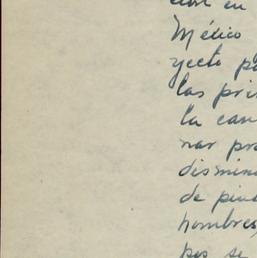 en
México
yecto
las pri
la can
nar pro
dismin
de pin
hombres,
pos se